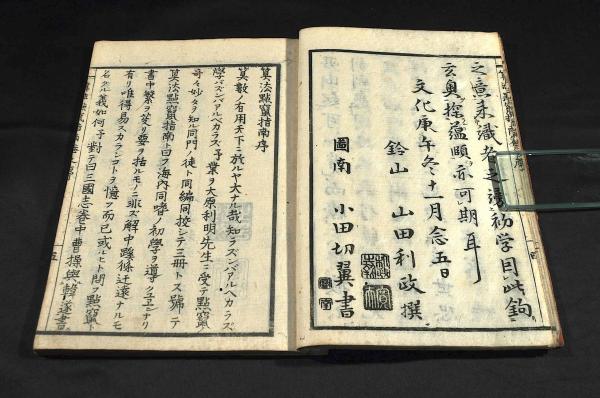 之意求識者之誘初学目此鉤
玄奥探蘊賾亦可期耳
文化庚午冬十一月念五日
鈴山 山田利政撰
圖南 小田切翼書
筭法點竄指南序
筭數ノ有用天下ニ於ルヤ大ナル哉知ラズンバアルベカラズ
學バズンバアルベカラズ予業ヲ大原利明先生ニ受テ點竄ノ
奇々妙々タヲ知ル同門ノ徒ト同編同挍シテ三冊トス號テ
筭法點竄指南ト曰フ海內同嗜ノ初學ヲ導クユヱンナリ
書中繁ヲ芟リ要ヲ括ルモノニ非ズ解中蹊條迂遠ナルモ
有リ唯得易スカランコトヲ憶フ而已或ルヒト問フ點竄ト
名クル義如何予對テ曰三國志卷中曹操與韓遂書